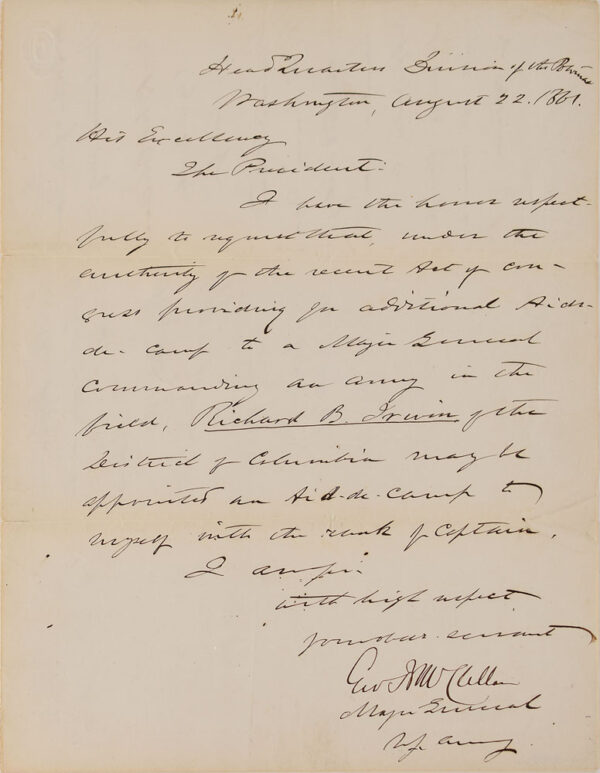 Head Quarters Division of the Potomac
Washington, August 22. 1861.
His Excellency
The President:
I have the honor respect-
fully to request that, under the
authority of the recent Act of Con-
gress providing for additional Aids-
de-camp to a Major General
commanding an army in the
field, Richard B. Irwin, of the
District of Columbia may be
appointed an Aid-de-camp to
myself with the rank of Captain.
I am,
with high respect
your obdt. servant
Geo B McClellan
Major General
U.S. Army